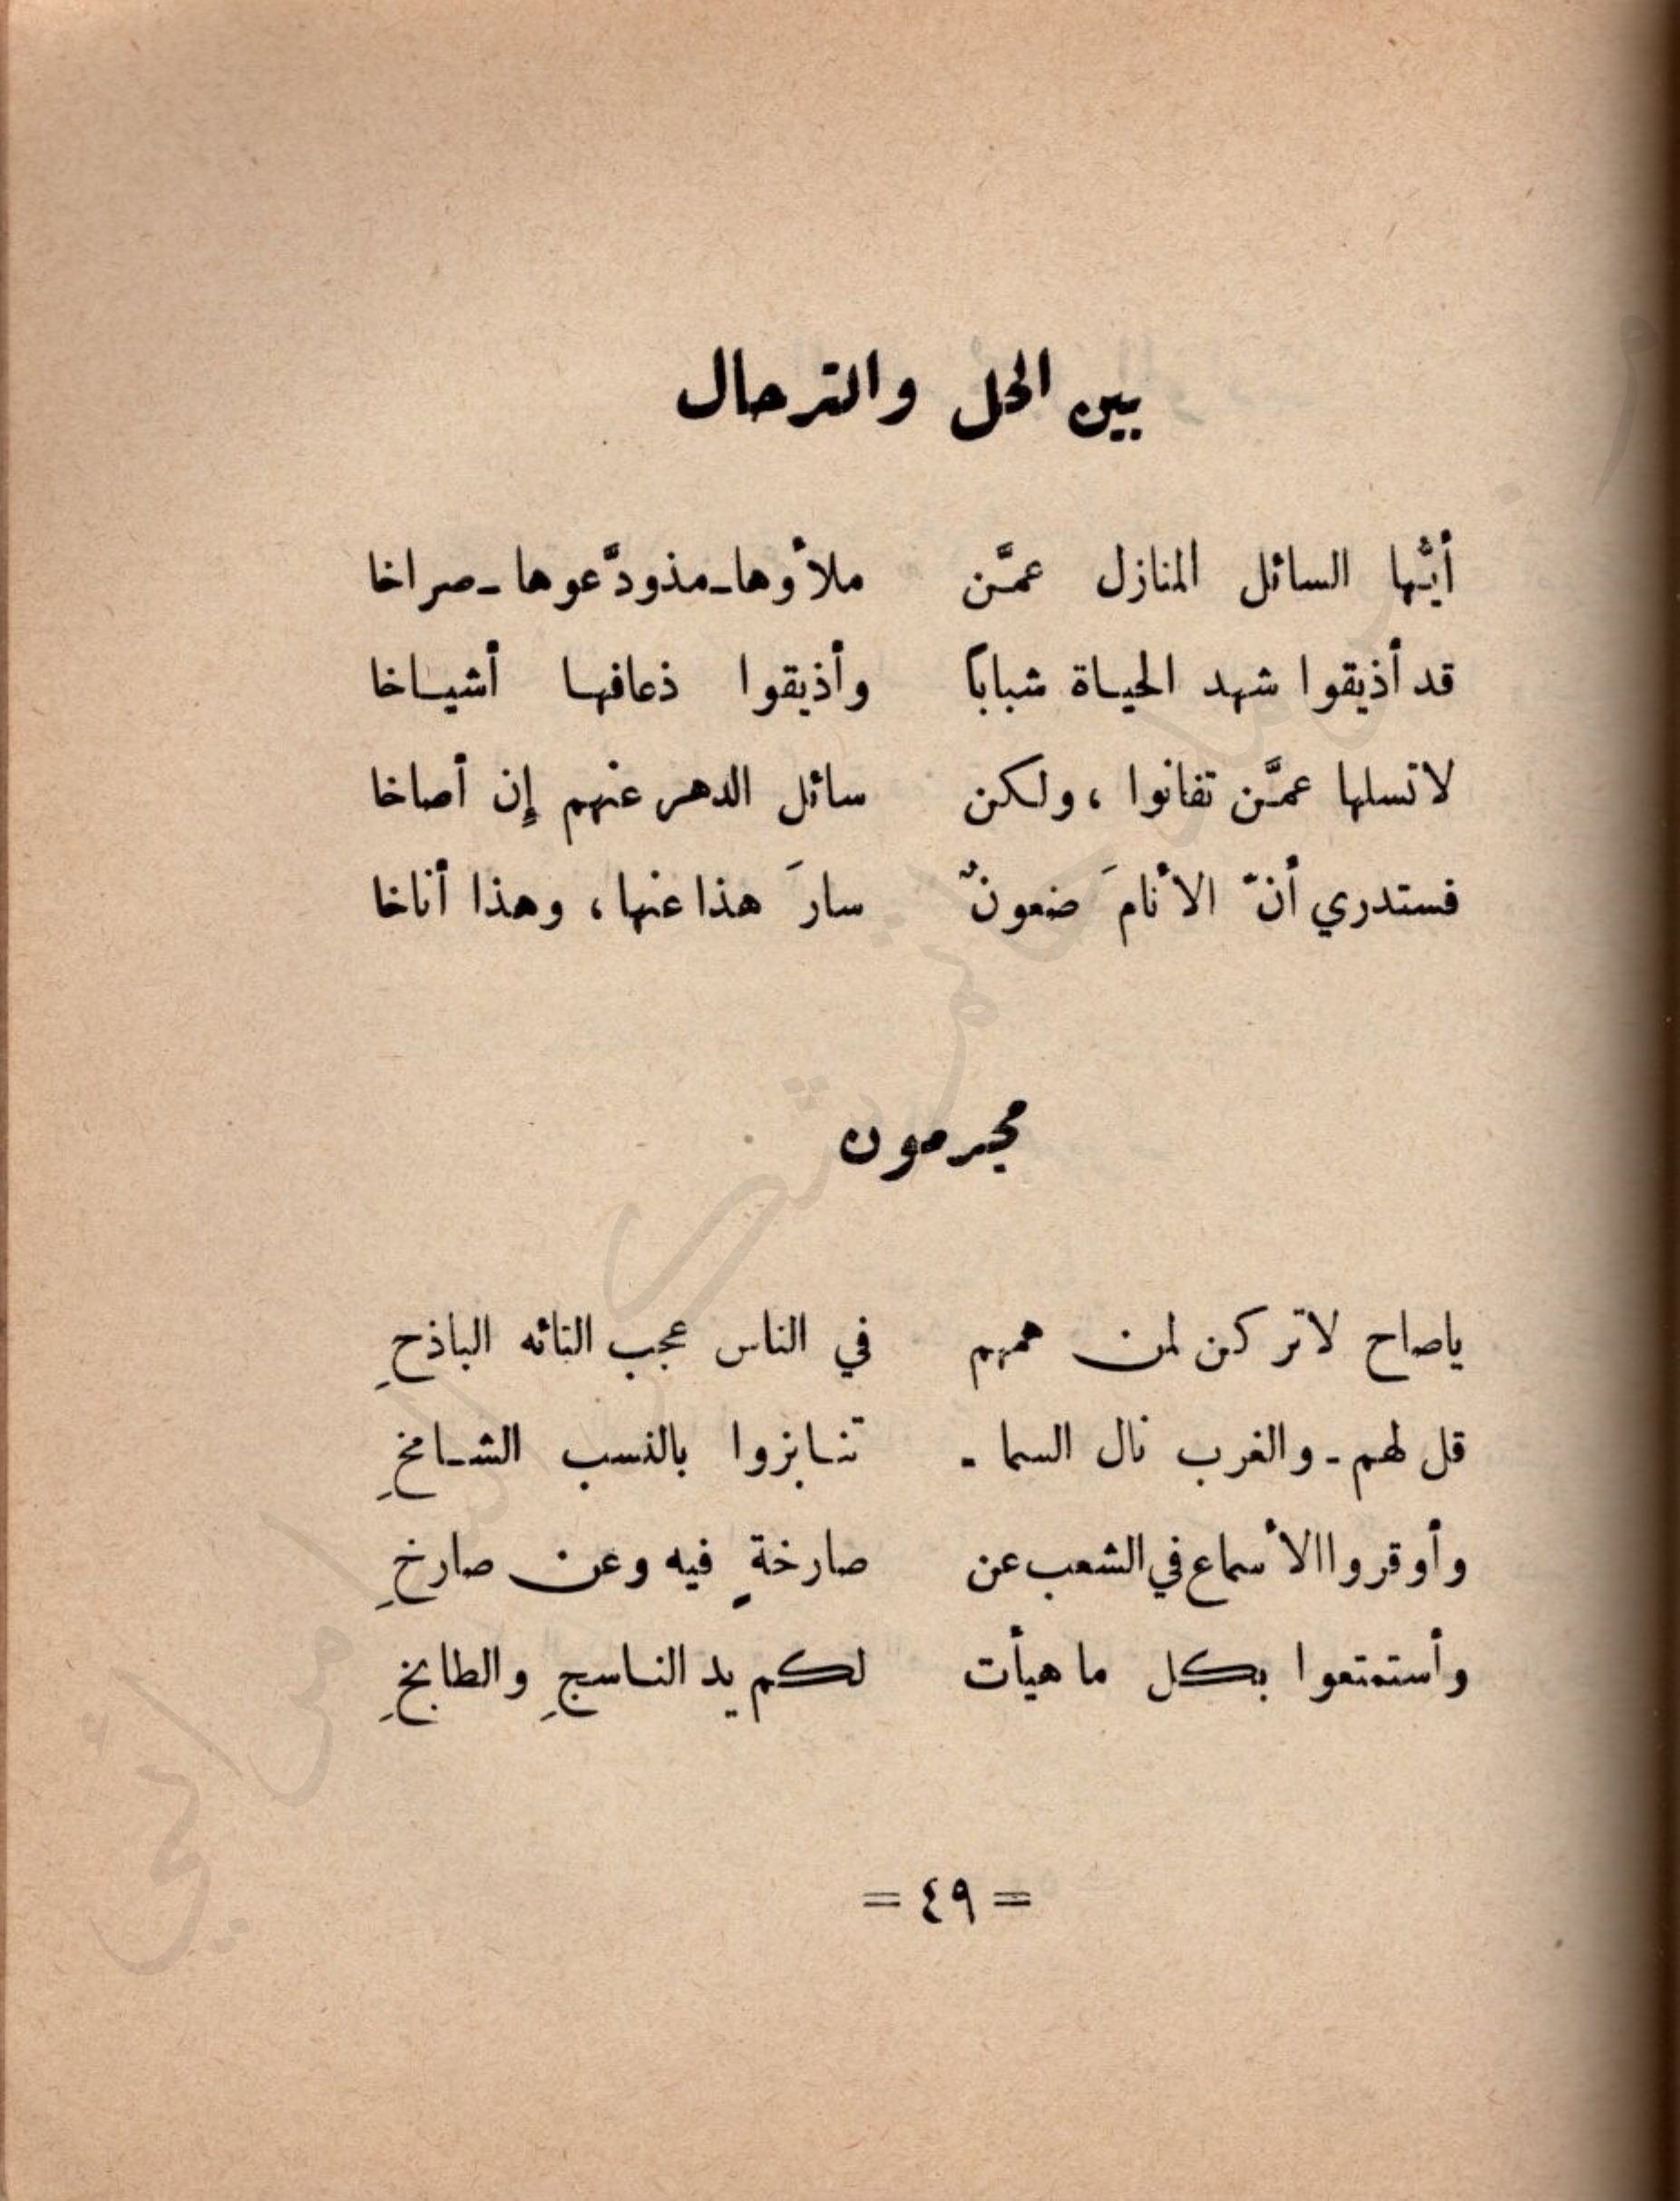 بين الحل والترحال
أيُّها السائل المنازل عمَّن ملأوها ـ مذودَّعوها ـ صراخا
قد أذيقوا شهد الحياة شباباً وأذيقوا ذعافها أشياخا
لاتسلها عمَّن تفانوا ، ولكن سائل الدهر عنهم إِن أصاخا
فستدري أنّ الأنامَ ضعونٌ سارَ هذا عنها ، وهذا أناخا
مجرمون
ياصاح لاتركن لمن همهم في الناس عجب التائه الباذحِ
قل لهم ـ والغرب نال السما ـ تنابزوا بالنسب الشامخِ
وأوقروا الأسماع في الشعب عن صارخةٍ فيه وعن صارخِ
وأستمتعوا بكل ما هيأت لكم يد الناسجِ والطابخِ
= ٤٩ =